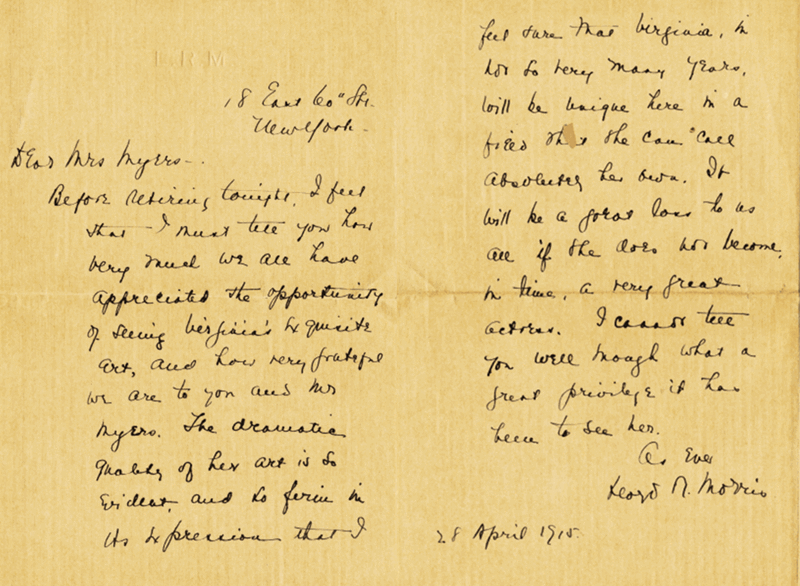 L R M
18 East 60" Str.
New York -
Dear Mrs Myers -.
Before retiring tonight, I feel
that I must tell you how
very much we all have
appreciated the opportunity
of seeing Virginia's exquisite
art, and how very grateful
we are to you and Mr
Myers. The dramatic
quality of her art is so
evident, and so firm in
its expression that I
feel sure that Virginia, in
not so very many years,
will be unique here in a
field that she can "call
absolutely her own. It
will be a great loss to us
all if she does not become,
in time, a very great
actress. I cannot tell
you well enough what a
great privilege it has
been to see her.
As Ever
Lloyd R. Morris
28 April 1915.